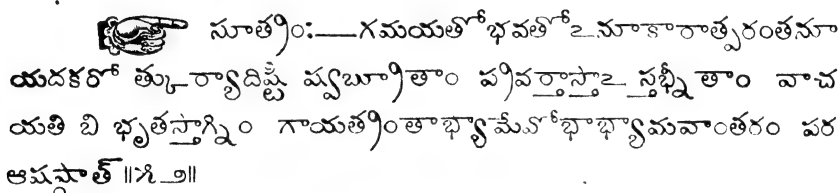 సూత్రం:—గమయతోభవతోఽనూకారాత్పరంతనూ
యదకరో త్కుర్యాదిష్టి ష్వబ్రూతాం ప్రవర్తాస్తాఽ స్తభ్నీతాం వాచ
యతి బి భృతస్తాగ్నిం గాయత్రింతాభ్యామేవోభాభ్యామవాంతరం పర
ఆషష్ఠాత్ ॥౫ ౨॥